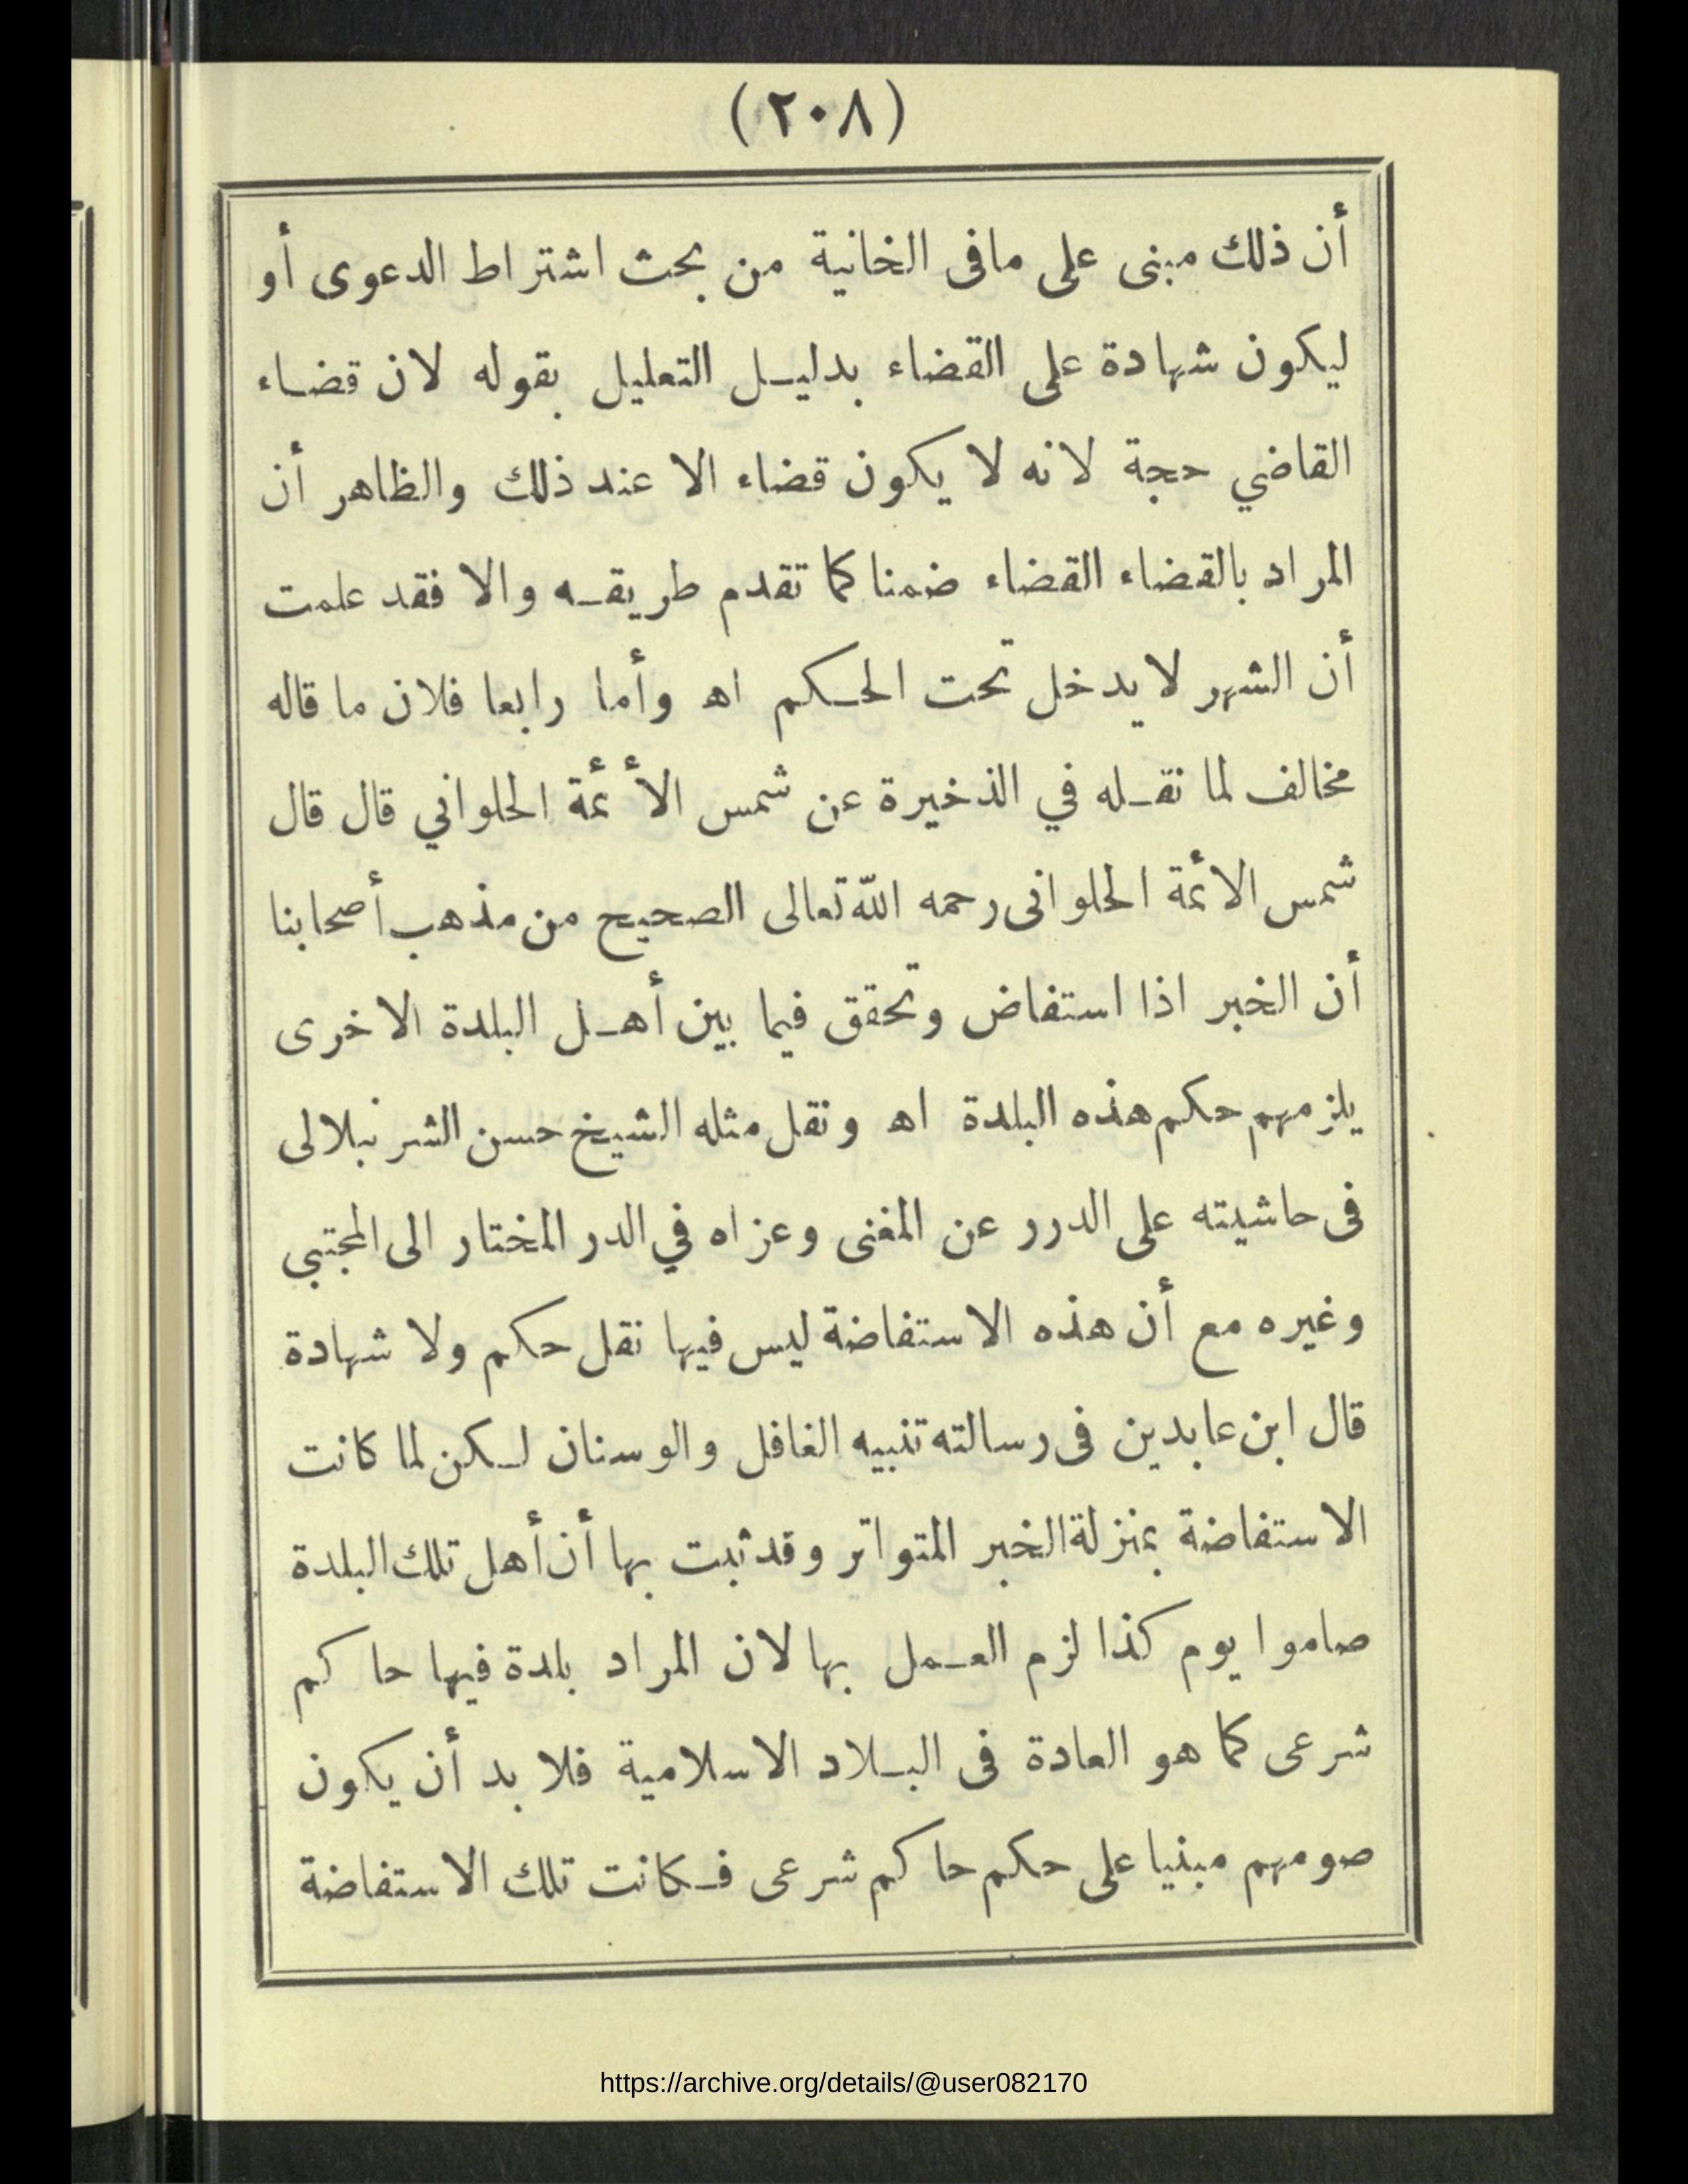 (٢٠٨)
أن ذلك مبنى على مافى الخانية من بحث اشتراط الدعوى أو
ليكون شهادة على القضاء بدليل التعليل بقوله لان قضاء
القاضي حجة لانه لا يكون قضاء الا عند ذلك والظاهر أن
المراد بالقضاء القضاء ضمنا كما تقدم طريقه والا فقد علمت
أن الشهر لا يدخل تحت الحكم اه وأما رابعا فلان ما قاله
مخالف لما نقله في الذخيرة عن شمس الأئمة الحلواني قال قال
شمس الائمة الحلوانى رحمه الله تعالى الصحيح من مذهب أصحابنا
أن الخبر اذا استفاض وتحقق فيما بين أهل البلدة الاخرى
يلزمهم حكم هذه البلدة اه ونقل مثله الشيخ حسن الشرنبلالى
فى حاشيته على الدرر عن المغنى وعزاه في الدر المختار الى المجتبي
وغيره مع أن هذه الاستفاضة ليس فيها نقل حكم ولا شهادة
قال ابن عابدين فى رسالته تنبيه الغافل والوسنان لكن لما كانت
الاستفاضة بمنزلة الخبر المتواتر وقد ثبت بها أن أهل تلك البلدة
صاموا يوم كذا لزم العمل بها لان المراد بلدة فيها حاكم
شرعى كما هو العادة فى البلاد الاسلامية فلا بد أن يكون
صومهم مبنيا على حكم حاكم شرعى فكانت تلك الاستفاضة
https://archive.org/details/@user082170